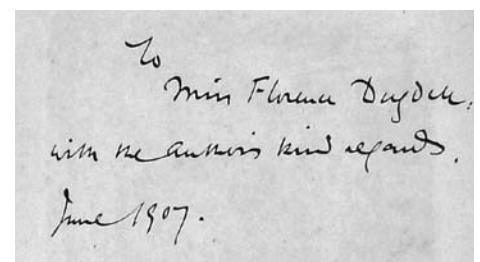 To
Miss Florence Dugdale,
with the author's kind regards.
June 1907.